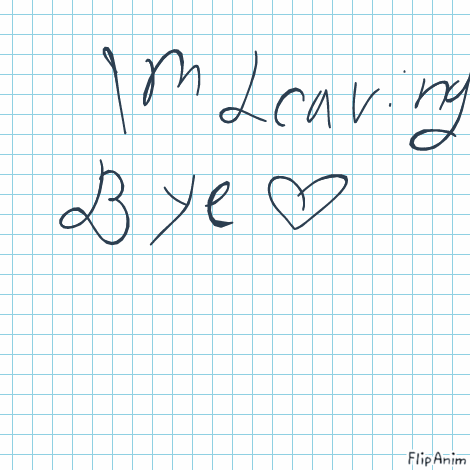 Im Leaving
Bye ♡
FlipAnim